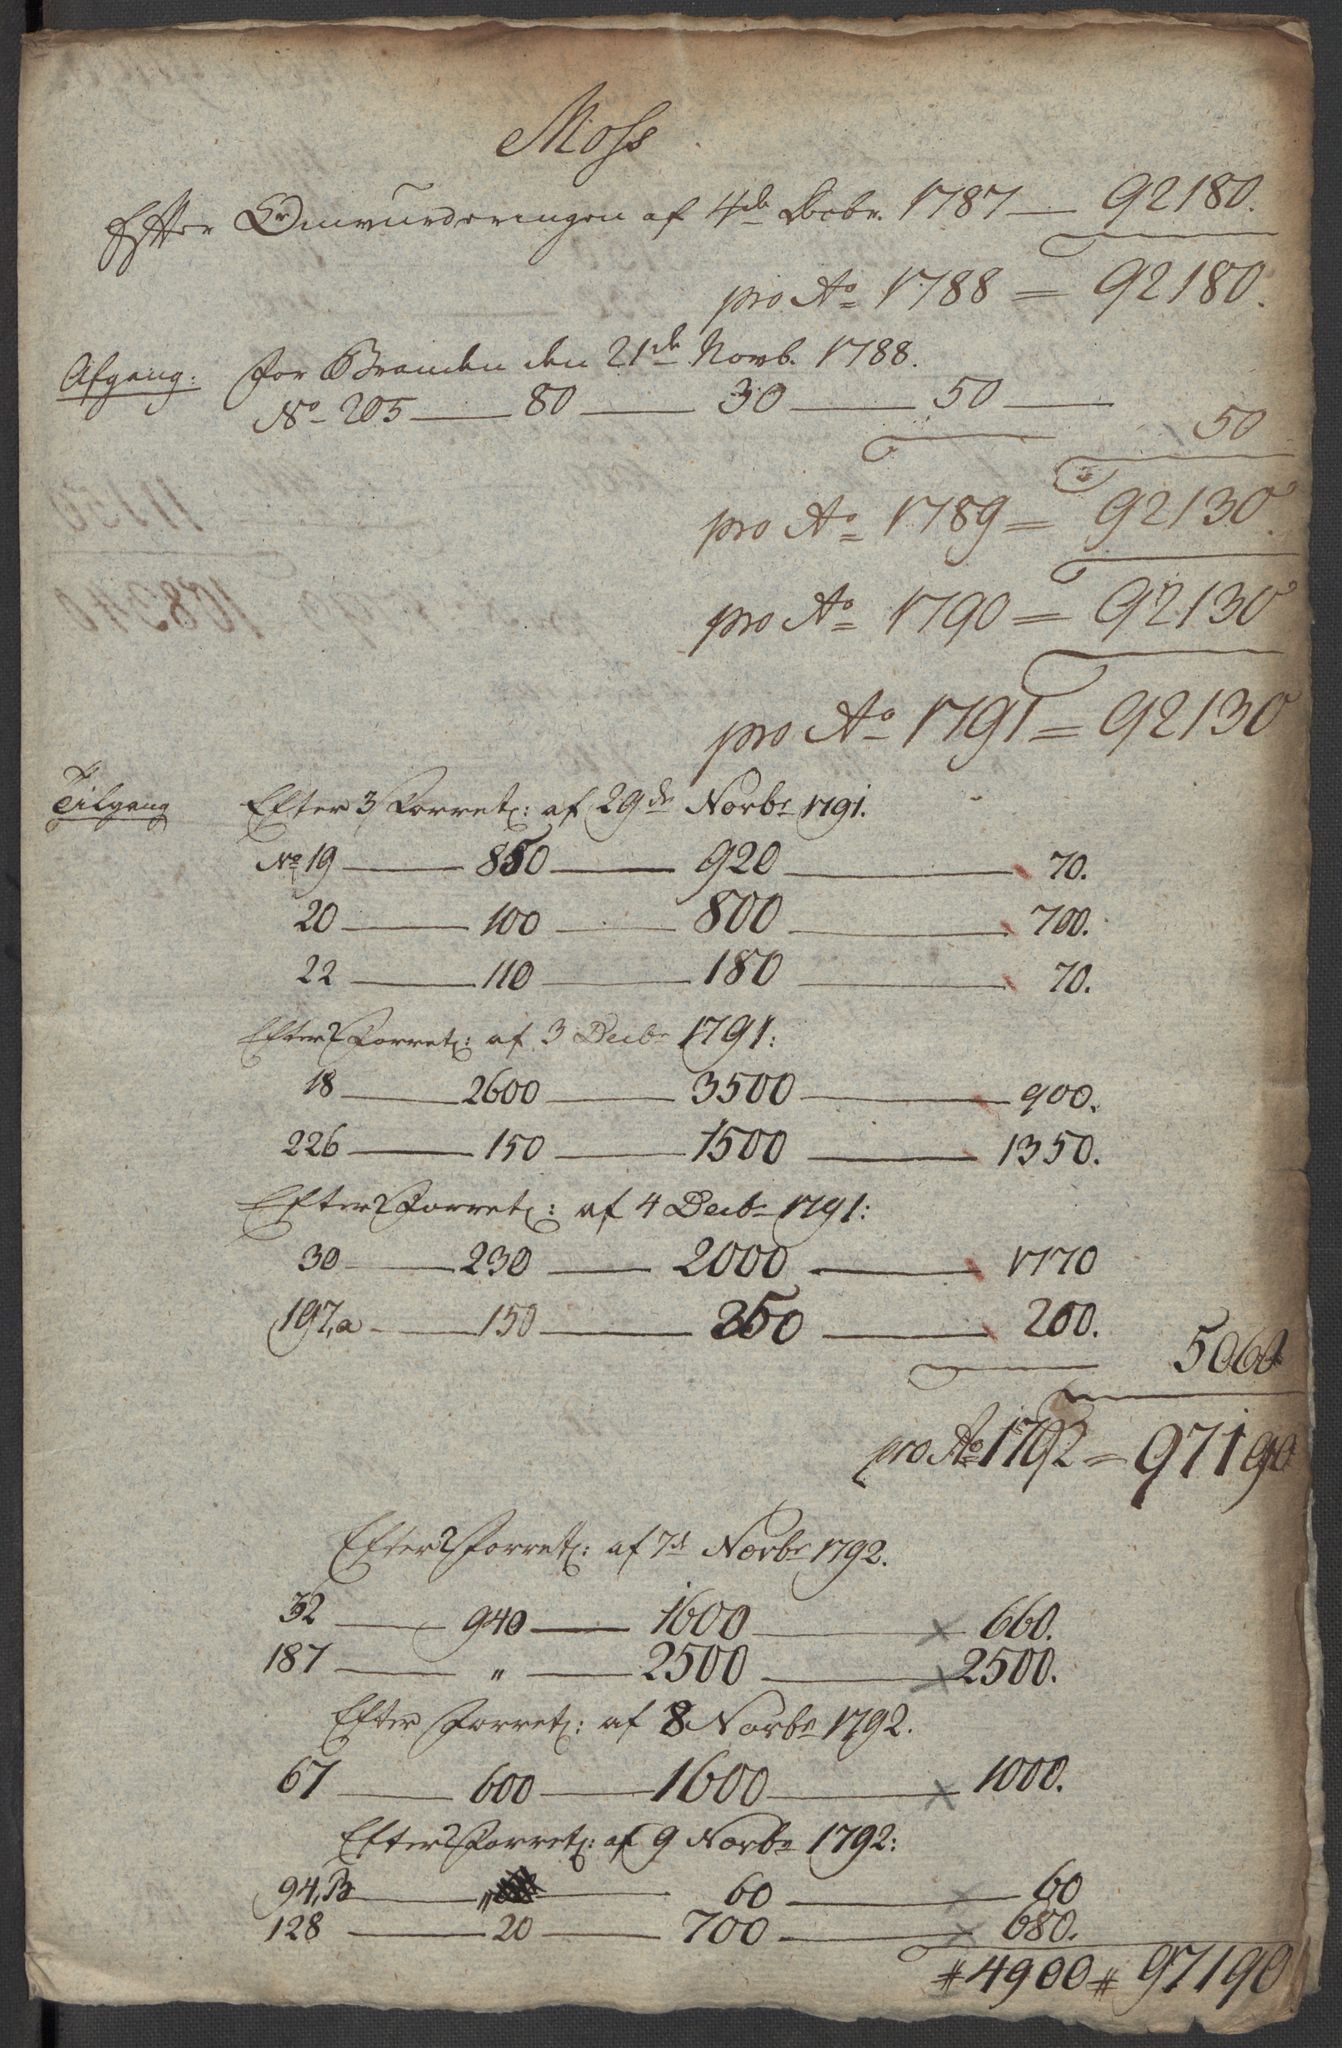 Moss
Efter Omvurderingen af 4de Decbr. 1787 — 92180.
pro Ao 1788 = 92180.
Afgang: For Branden den 21de Novb. 1788.
No 205 — 80 — 30 — 50 —
50
pro Ao 1789 = 92130.
pro Ao 1790 = 92130
pro Ao 1791 = 92130
Tilgang Efter Forret: af 29de Novbr 1791.
No 19 — 850 — 920 — 70.
20 — 100 — 800 — 700.
22 — 110 — 180 — 70.
Efter Forret: af 3 Decbr 1791:
18 — 2600 — 3500 — 900.
226 — 150 — 1500 — 1350.
Efter Forret: af 4 Decbr 1791:
30 — 230 — 2000 — 1770
197,a — 150 — 350 — 200.
5060
pro Ao 1792 = 97190
Efter Forret: af 7de Novbr 1792.
32 — 940 — 1600 — 660.
187 — " — 2500 — 2500.
Efter Forret: af 8 Novbr 1792.
67 — 600 — 1600 — 1000.
Efter Forret: af 9 Novbr 1792:
94,B — " — 60 — 60
128 — 20 — 700 — 680.
# 4900 # 97190